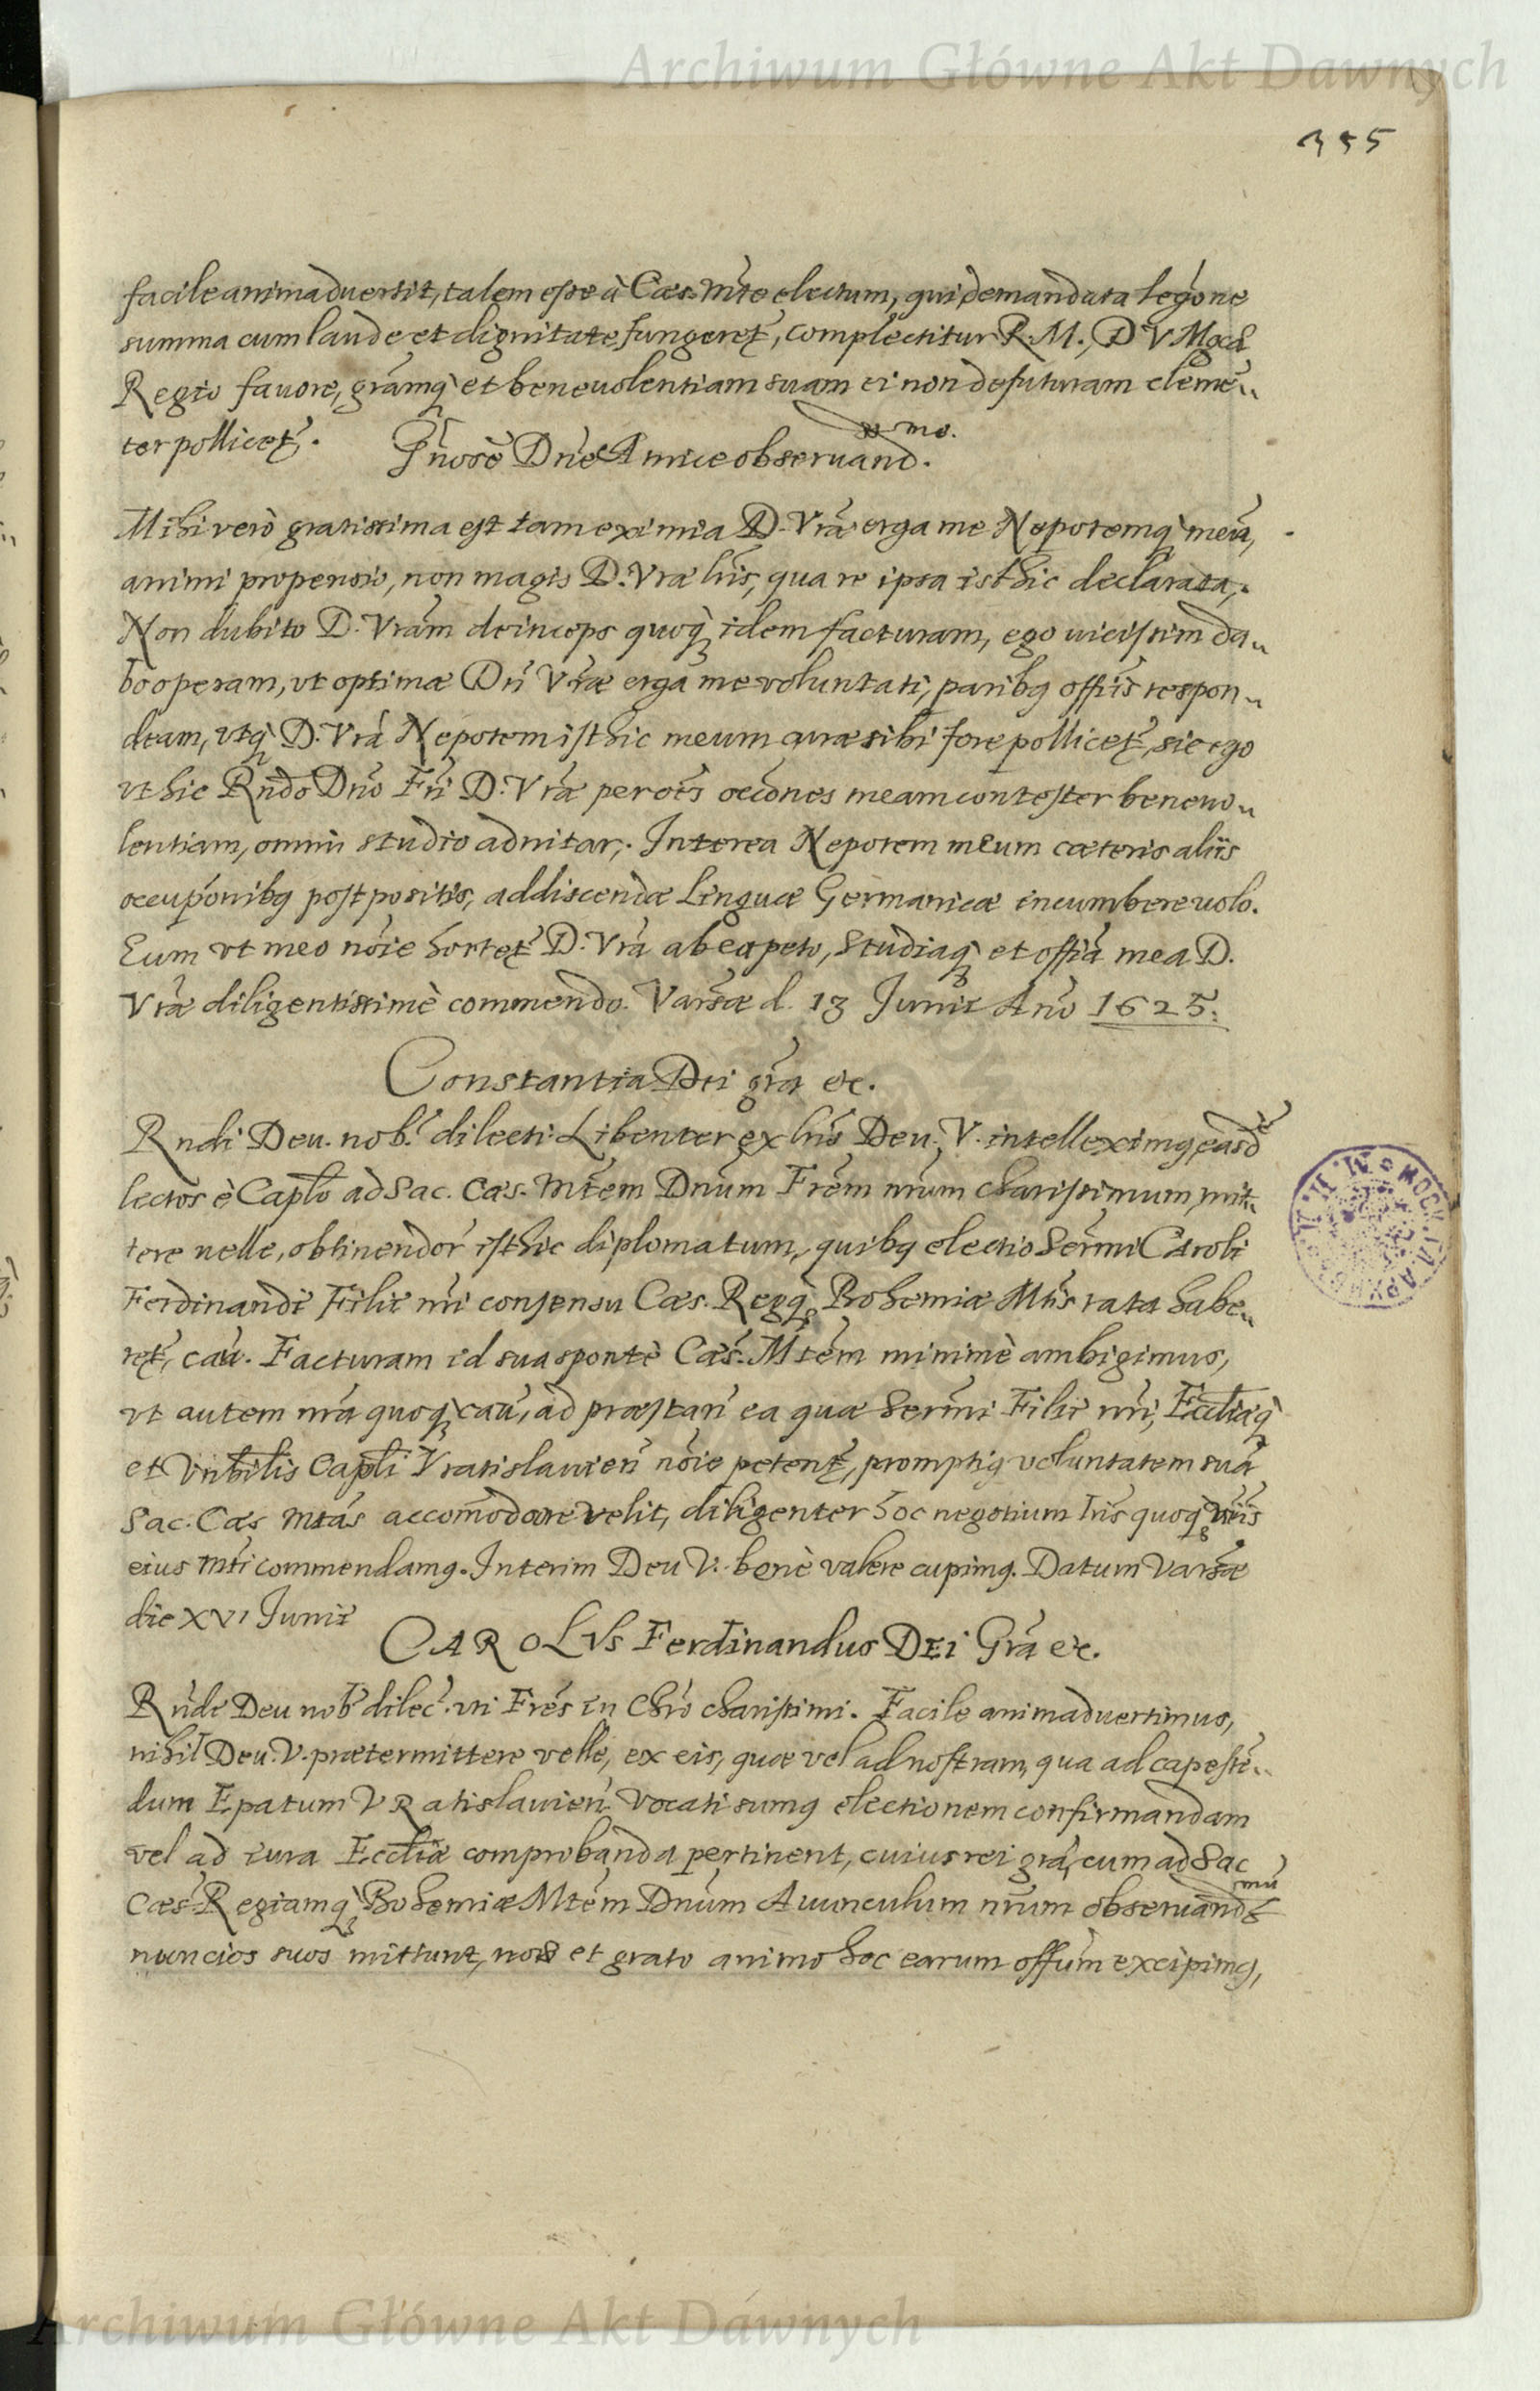 Archiwum Główne Akt Dawnych
355
facile animaduertit, talem esse à Cæs. Mte electum, qui demandata legóne
summa cum laude et dignitate fungeret, complectitur R. M., D V Mgcā
Regio fauore, grāmq; et beneuolentiam suam ei non defuturam cleme„
ter pollicet.
Gnose Dne Amice obseruand. mo.
Mihi verò gratissima est tam eximia D. Vrā erga me Nepotemq; meū,
animi propensio, non magis D. Vræ lris, qua re ipsa isthic declarata,.
Non dubito D. Vram deinceps quoq; idem facturam, ego uicissim da„
bo operam, vt optimæ Dn Vræ erga me voluntati, paribq offiis respon„
deam, vtq; D. Vrā Nepotem isthic meum curæ sibi fore pollicet, sic ego
vt hic Rndo Dno Fri D. Vræ per oēs occónes meam contester beneuo„
lentiam, omni studio adnitar,. Interea Nepotem meum cæteris aliis
occupónibq postpositis, addiscendæ Linguæ Germanicæ incumbere uolo.
Eum vt meo nōie hortet D. Vrā ab ea peto, studiaq; et offiā mea D.
Vræ diligentissimè commendo. Varsæ d. 13 Junii Anō 1625.
Constantia Dei grā etc.
Rndi Deu. nob. dilecti. Libenter ex lris Deu. V. intelleximq, easdē
lectos è Caplo ad Sac. Cæs. Mtem Dnum Frem nrum charissimum mit„
tere uelle, obtinendor isthic diplomatum, quibq electio Sermi Caroli
Ferdinandi Filii nri consensu Cæs. Regq; Bohemiæ Mtis rata habe„
ret, cau. Facturam id sua sponte Cæs. Mtem minimè ambigimus,
vt autem nrā quoq; cau, ad præstan ea quæ Sermi Filii nri, Eccliæq;
et Vnbilis Capli Vratislauien nōie petent, promptiq voluntatem suā
Sac. Cæs Mtas accomodare velit, diligenter hoc negotium lris quoq; nris
eius Mti commendamq. Interim Deu V. benè valere cupimq. Datum Varsæ
die XVI Junii
CAROLVS Ferdinandus DEI Grā etc.
Rnde Deu nob dilec. uti Fres in Chro charissimi. Facile animaduertimus,
nihil Deu. V. prætermittere velle, ex eis, quæ vel ad nostram, qua ad capessē„
dum Epatum VRatislauien vocati sumq electionem confirmandam
vel ad iura Eccliæ comprobanda pertinent, cuius rei grā, cum ad Sac
Cæs Regiamq; Bohemiæ Mtem Dnum Auunculum nrum obseruand mū
nuncios suos mittunt, nos et grato animo hoc earum offium excipimq,
Archiwum Główne Akt Dawnych